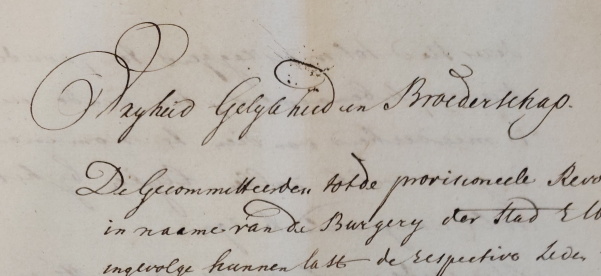 Vryheid Gelykheid en Broederschap.
De Gecommitteerden tot de provisioneele Revo
in naame van de Burgery der Stad Elb
ingevolge hunnen last de respective Leden